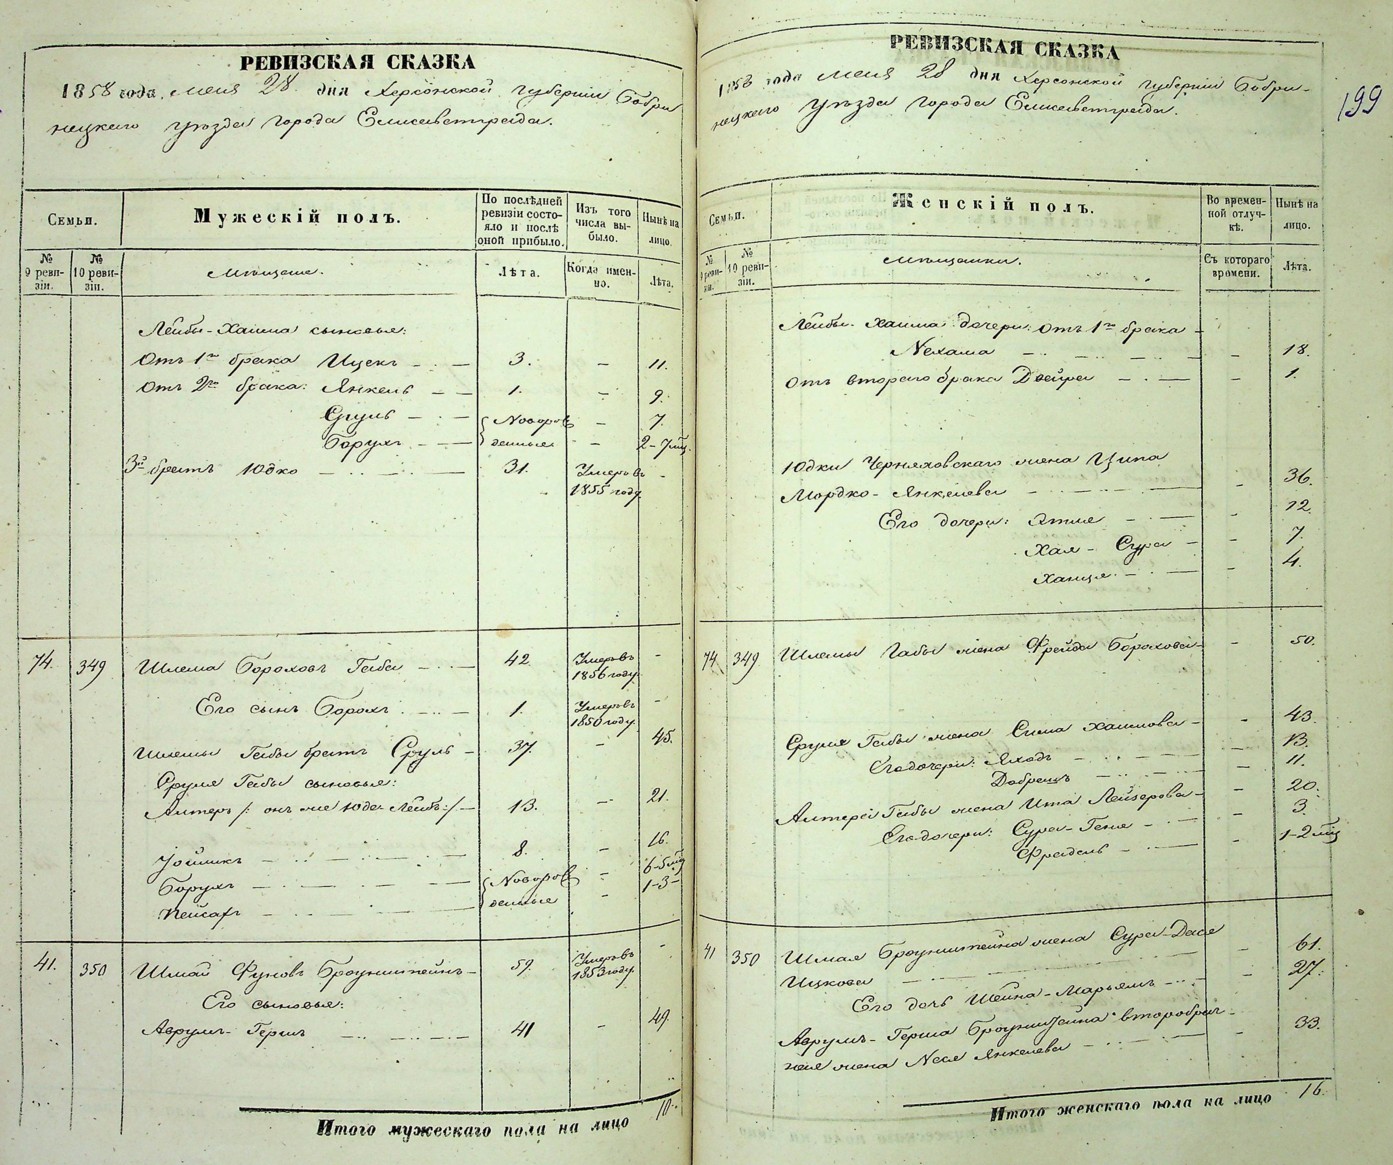 РЕВИЗСКАЯ СКАЗКА
1858 года, мая 28 дня Херсонской губерніи Бобри
нецкаго уѣзда города Елисаветграда.
Семьи.
Мужескій полъ.
По послѣдней ревизіи состояло и послѣ оной прибыло.
Изъ того числа выбыло.
Нынѣ на лицо.
№ 9 ревизіи.
№ 10 ревизіи.
Мѣщане.
Лѣта.
Когда именно.
Лѣта.
Лейбы-Хаима сыновья:
Отъ 1го брака Ицекъ — 3. — 11.
Отъ 2го брака: Янкель — 1. — 9.
Сруль — Новорож — 7.
Борухъ — денные — 2-7 мц.
3й братъ Юдко — 31. Умеръ въ —
1855 году.
74. 349 Шлема Бороховъ Габа — 42. Умеръ въ —
1856 году.
Его сынъ Борохъ — 1. Умеръ въ —
1850 году.
Шлемы Габы братъ Сруль — 37 — 45.
Сруля Габы сыновья:
Алтеръ /: онъ же Юда-Лейбъ:/ — 13. — 21.
Йойликъ — 8. — 16.
Борухъ — Новорож — 6-5 мц
Пейсахъ — денные — 1-3-
41. 350 Шмай Фуновъ Броунштейнъ — 59. Умеръ въ —
1853 году.
Его сыновья:
Аврумъ-Гершъ — 41 — 49.
Итого мужескаго пола на лицо 10.
РЕВИЗСКАЯ СКАЗКА
1858 года мая 28 дня Херсонской губерніи Бобри-
нецкаго уѣзда города Елисаветграда.
199
Семьи.
Женскій полъ.
Во временной отлучкѣ.
Нынѣ на лицо.
№ 9 ревизіи.
№ 10 ревизіи.
Мѣщанки.
Съ котораго времени.
Лѣта.
Лейбы-Хаима дочери: отъ 1го брака —
Нехама — — 18.
отъ втораго брака Двейра — — 1.
Юдки Черняховскаго жена Ципа
Мордко-Янкелева — — 36.
Его дочери: Этля — — 12.
Хая-Сура — — 7.
Ханця — — 4.
74. 349 Шлемы Габы жена Фрейда Борохова — — 50.
Сруля Габы жена Сима Хаимова — — 43.
Его дочери: Яходъ — — 13.
Добрецъ — — 11.
Алтера Габы жена Ита Лейзерова — — 20.
Его дочери: Сура-Геня — — 3.
Фрейдель — — 1-2 мц
41 350 Шмая Броунштейна жена Сура-Дася
Ицкова — — 61.
Его дочь Шейна-Марьямъ — — 27.
Аврумъ-Герша Броунштейна второбрач-
ная жена Неся Янкелева — — 33.
Итого женскаго пола на лицо 16.